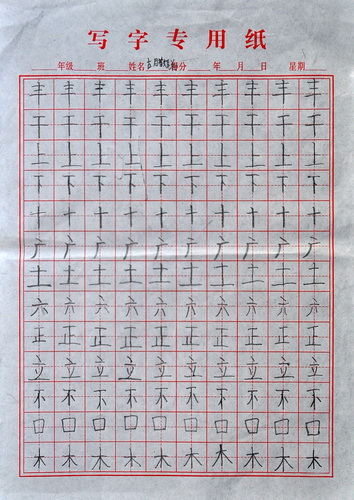 写字专用纸
年级 班 姓名 得分 年 月 日 星期
丰 丰 丰 丰 丰 丰 丰 丰 丰 丰
干 干 干 干 干 干 干 干 干 干
上 上 上 上 上 上 上 上 上 上
下 下 下 下 下 下 下 下 下 下
十 十 十 十 十 十 十 十 十 十
广 广 广 广 广 广 广 广 广 广
土 土 土 土 土 土 土 土 土 土
六 六 六 六 六 六 六 六 六 六
正 正 正 正 正 正 正 正 正 正
立 立 立 立 立 立 立 立 立 立
不 不 不 不 不 不 不 不 不 不
口 口 口 口 口 口 口 口 口 口
木 木 木 木 木 木 木 木 木 木